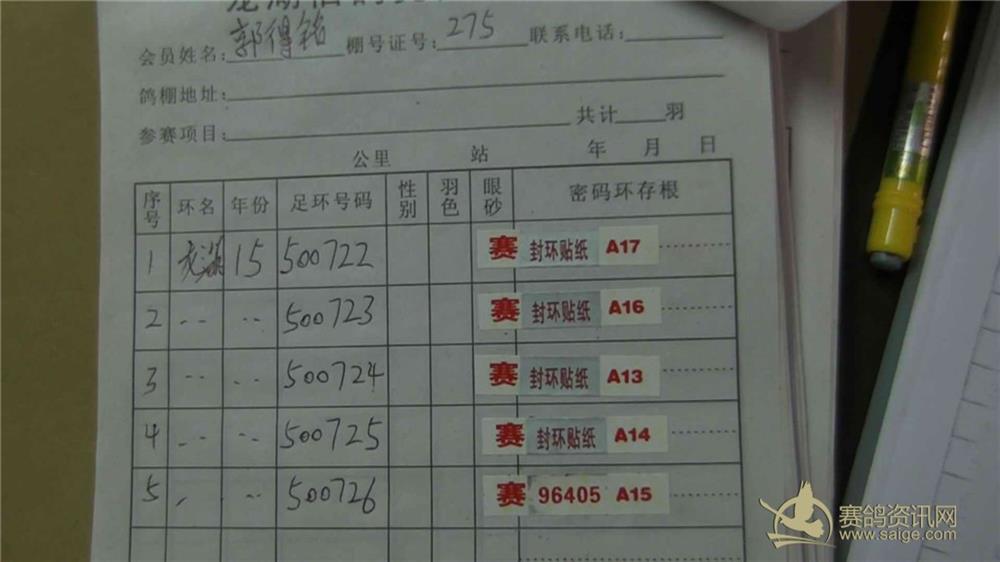 会员姓名：郭得铭 棚号证号：275 联系电话：
鸽棚地址：
参赛项目： 共计 羽
公里 站 年 月 日
序号 环名 年份 足环号码 性别 羽色 眼砂 密码环存根
1 龙湖 15 500722 赛 封环贴纸 A17
2 500723 赛 封环贴纸 A16
3 500724 赛 封环贴纸 A13
4 500725 赛 封环贴纸 A14
5 500726 赛 96405 A15
赛鸽资讯网
www.saige.com